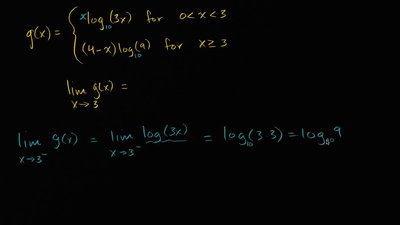 g(x) = { x log₁₀(3x) for 0 < x < 3
(4-x) log₁₀(9) for x ≥ 3
lim x→3 g(x) =
lim x→3⁻ g(x) = lim x→3⁻ log(3x) = log₁₀(3·3) = log₁₀ 9